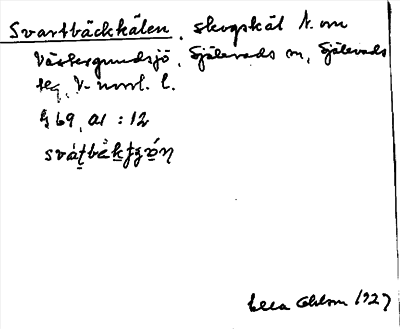 Svartbäckkälen, skogskäl N. om
Västergundsjö, Själevads sn, Själevads
tg, V-norrl. l.
§ 69, a1 : 12
Ella Ohlson 1927